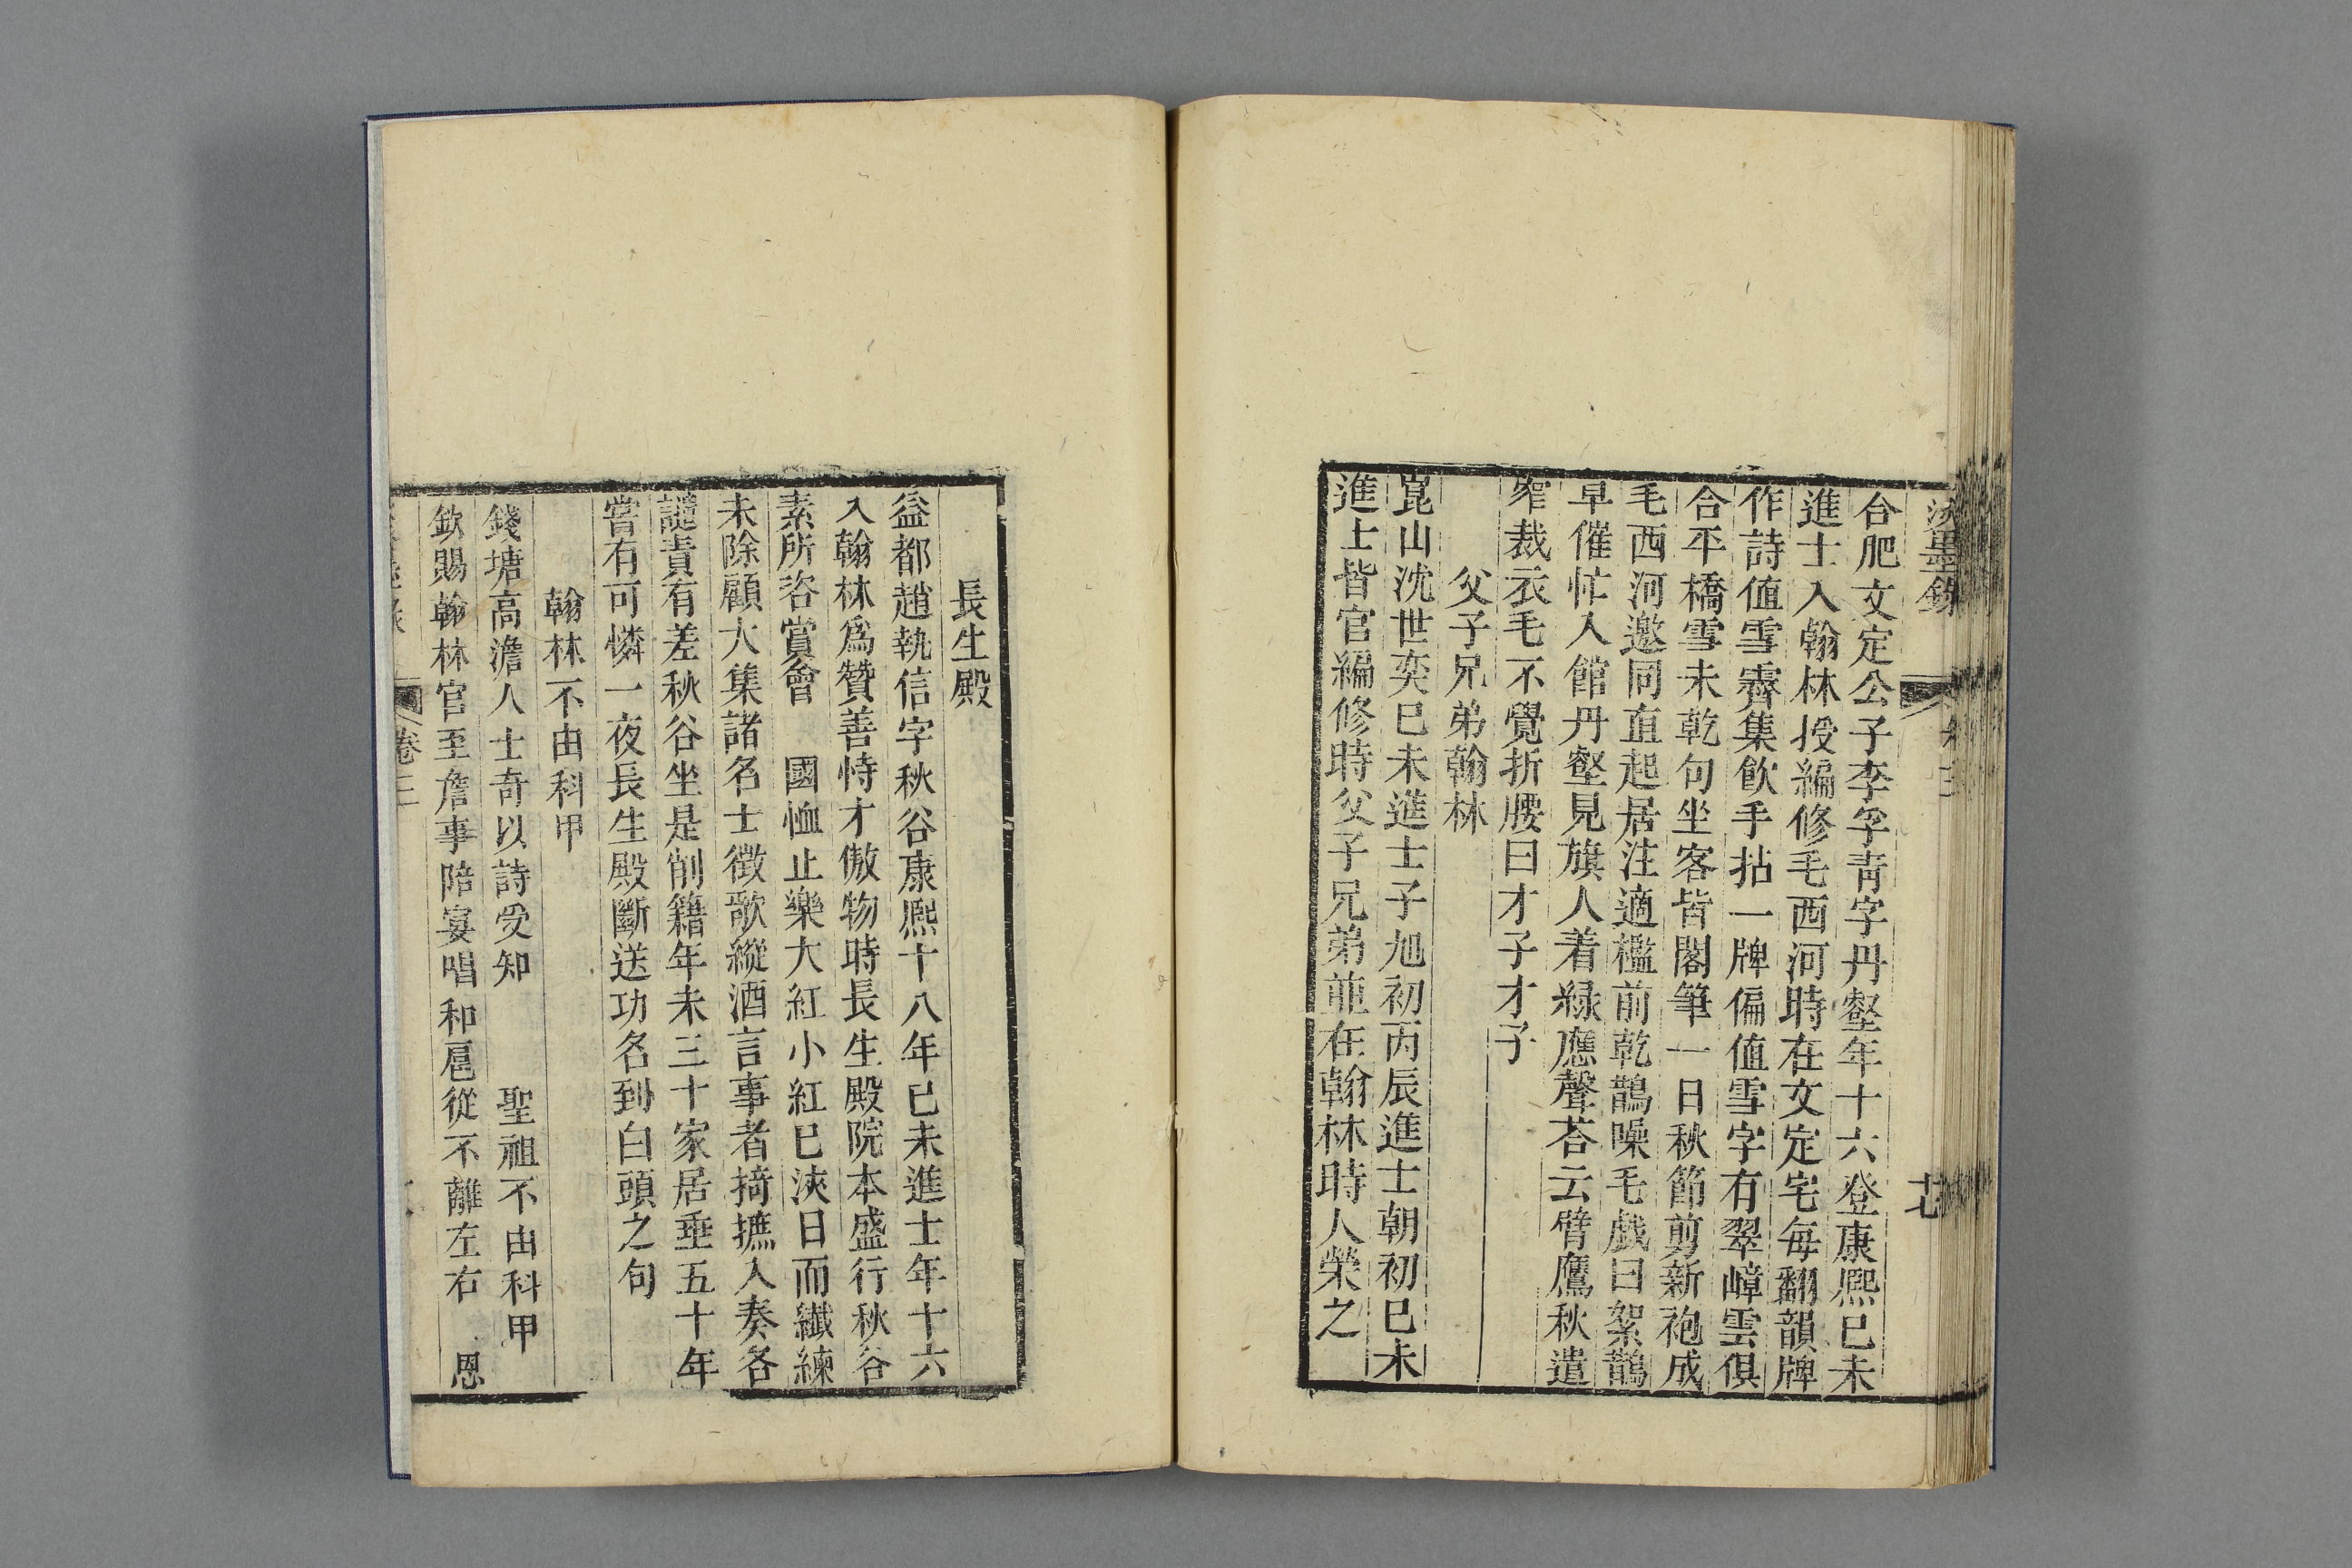 合肥文定公子李孚青字丹壑年十六登康熙己未
進士入翰林授編修毛西河時在文定宅每翻韻牌
作詩値雪霽集飮手拈一牌偏値雪字有翠嶂雲俱
合平橋雪未乾句坐客皆閣筆一日秋節剪新袍成
毛西河邀同直起居注適檻前乾鵲噪毛戱曰絮鵲
早催忙入館丹壑見旗人着緑應聲荅云臂鷹秋遣
窄裁衣毛不覺折腰曰才子才子
父子兄弟翰林
崑山沈世奕己未進士子旭初丙辰進士朝初己未
進士皆官編修時父子兄弟並在翰林時人榮之
長生殿
益都趙執信字秋谷康熙十八年已未進士年十六
入翰林爲贊善恃才傲物時長生殿院本盛行秋谷
素所咨賞會　國恤止樂大紅小紅已浹日而纖練
未除顧大集諸名士徵歌縱酒言事者摛摭入奏各
譴責有差秋谷坐是削籍年未三十家居垂五十年
嘗有可憐一夜長生殿斷送功名到白頭之句
翰林不由科甲
錢塘高澹人士奇以詩受知　聖祖不由科甲
欽賜翰林官至詹事陪宴唱和扈從不離左右　恩
卷三